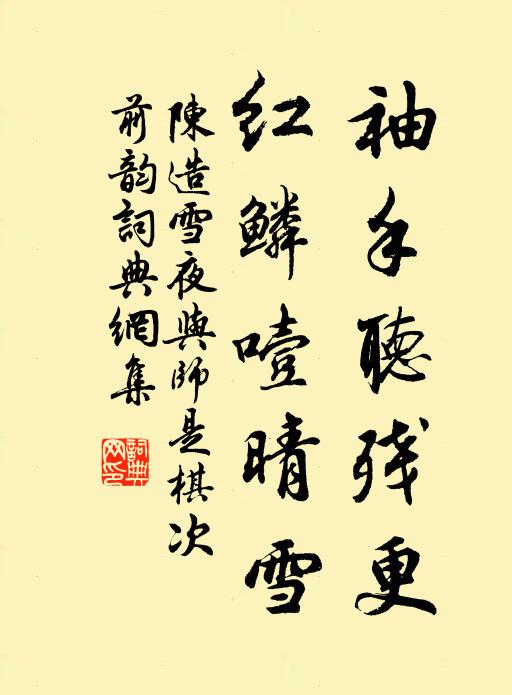 袖手聽残更
红鳞噎晴雪
陳造雪夜與師是棋次
前韵詞典網集
詞典網印